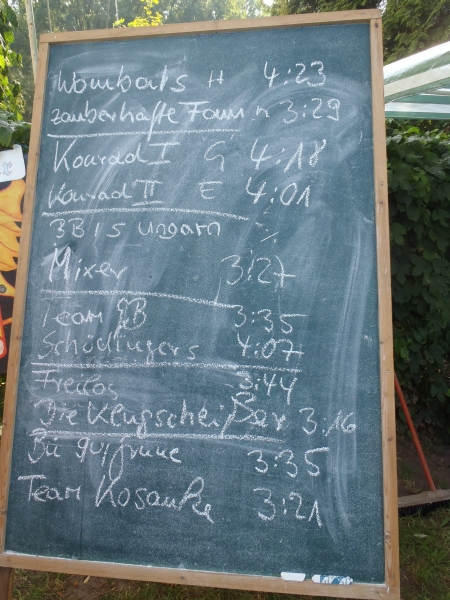 Wombats H 4:23
zauberhafte 3:29
Konrad I G 4:18
Konrad II E 4:01
3B15 ungarn %
Mixer 3:27
Team 3:35
Schödingers 4:07
Freilos 3:44
Die Klugscheißer 3:16
3:35
Team Kosanke 3:21